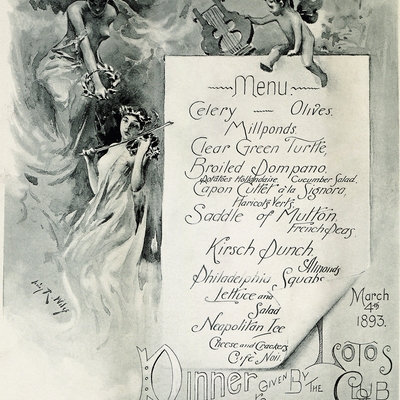 Menu
Celery — Olives.
Millponds.
Clear Green Turtle,
Broiled Pompano,
Potatoes Hollandaise. Cucumber Salad.
Capon Cutlet a'la Signora,
Haricots Verts.
Saddle of Mutton,
French Peas.
Kirsch Punch.
Almonds
Philadelphia Squabs
Lettuce and
Salad
Neapolitan Ice
Cheese and Crackers
Cafe Noir.
March
4th
1893.
Dinner Given By The Lotos Club